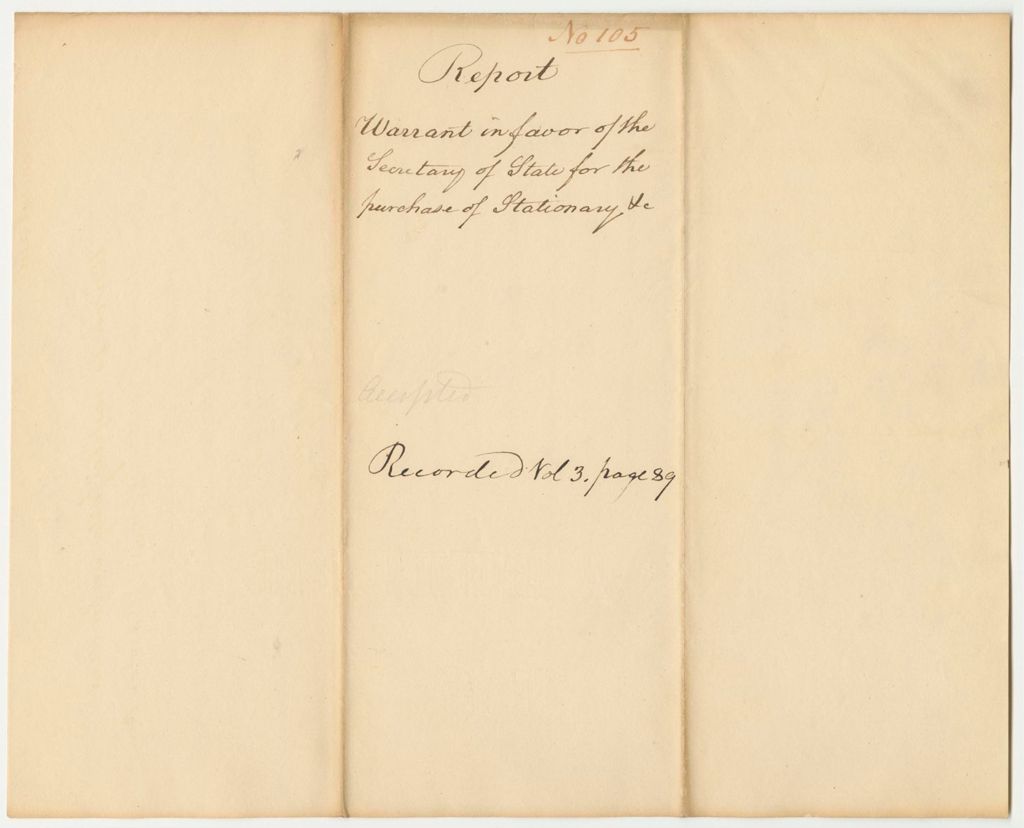 No 105
Report
Warrant in favor of the
Secretary of State for the
purchase of Stationary, &c
Accepted
Recorded Vol 3. page 89